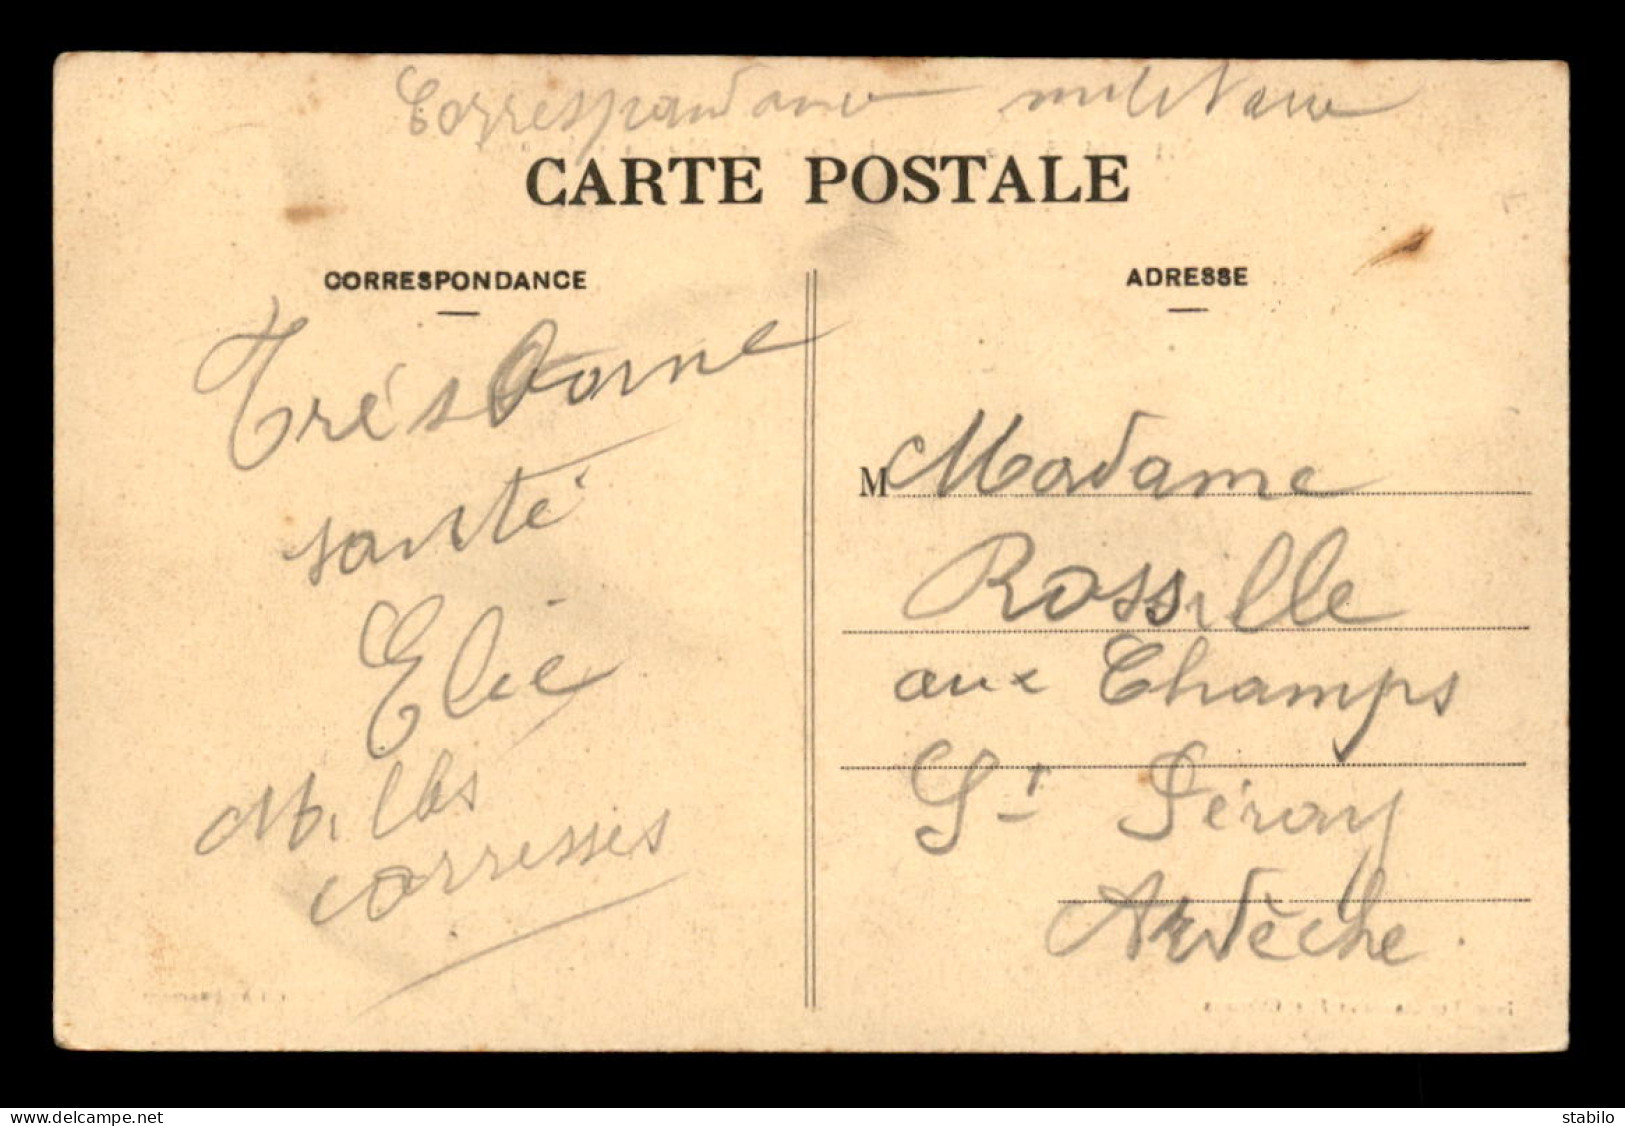 Correspondance militaire
CARTE POSTALE
CORRESPONDANCE
Trés bonne
santé
Elie
M. lles
carresses
ADRESSE
M Madame
Rossille
aux Champs
St Péray
Ardèche
www.delcampe.net
stabilo